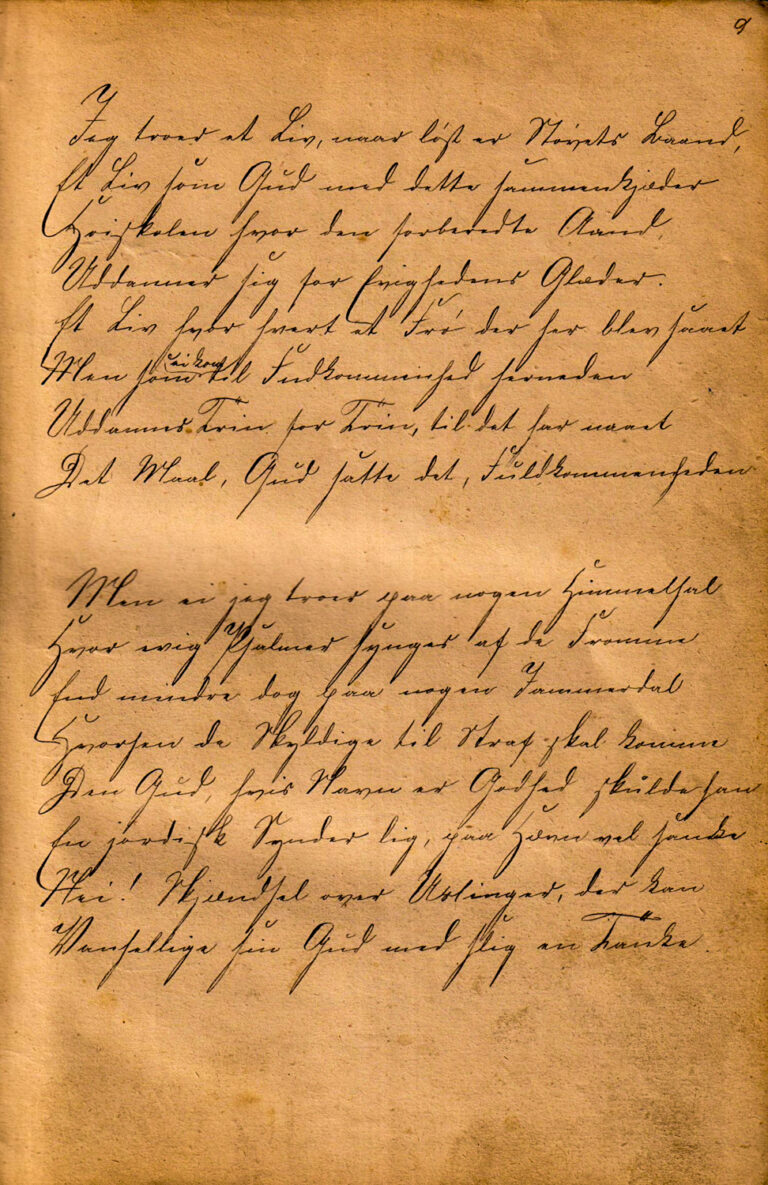 9
Jeg troer et Liv, naar løst er Støvets Baand,
Et Liv som Gud med dette sammenkjæder
Høiskolen hvor den forberedte Aand,
Uddanner sig for Evighedens Glæder.
Et Liv hvor hvert et Frø der her blev saaet
Men som ei kom til Fuldkommenhed herneden
Uddannes Trin for Trin, til det har naaet
Det Maal, Gud satte det, Fuldkommenheden
Men ei jeg troer paa nogen Himmelsal
Hvor evig Psalmer synges af de Fromme
End mindre dog paa nogen Jammerdal
Hvorhen de Skyldige til Straf skal komme
Den Gud, hvis Navn er Godhed skulde han
En jordisk Synder lig, paa Hævn vel tænke
Nei! Skjændsel over Uslinger, der kan
Vanhellige sin Gud med slig en Tanke.